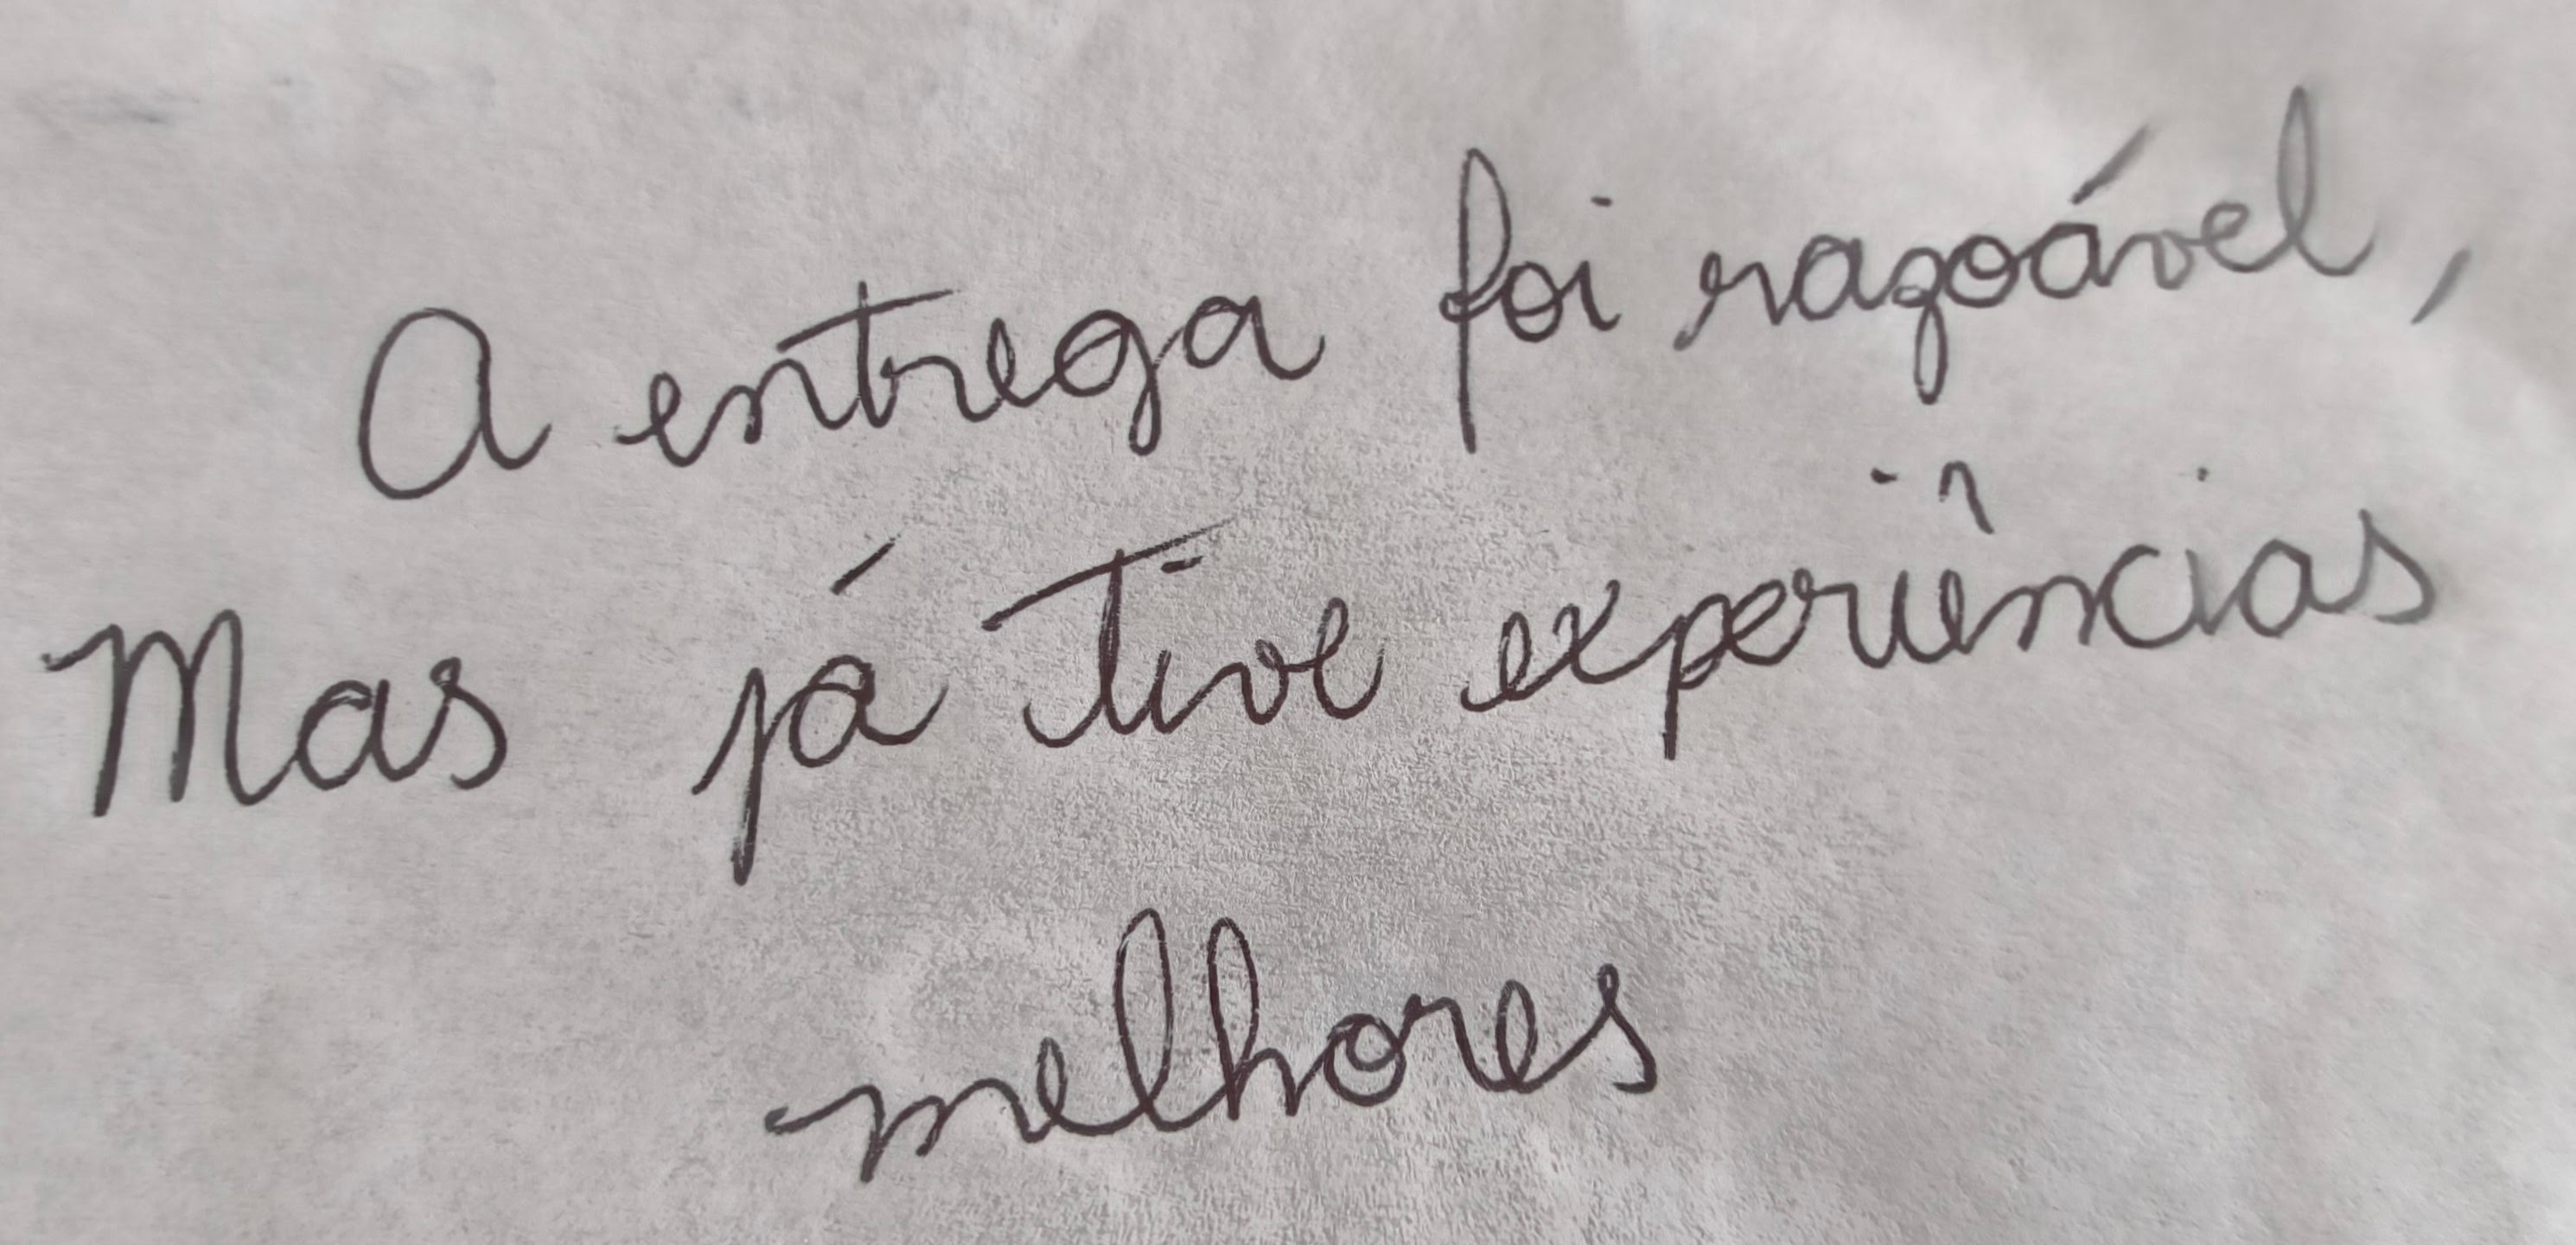 A entrega foi razoável,
Mas já tive experiências
melhores